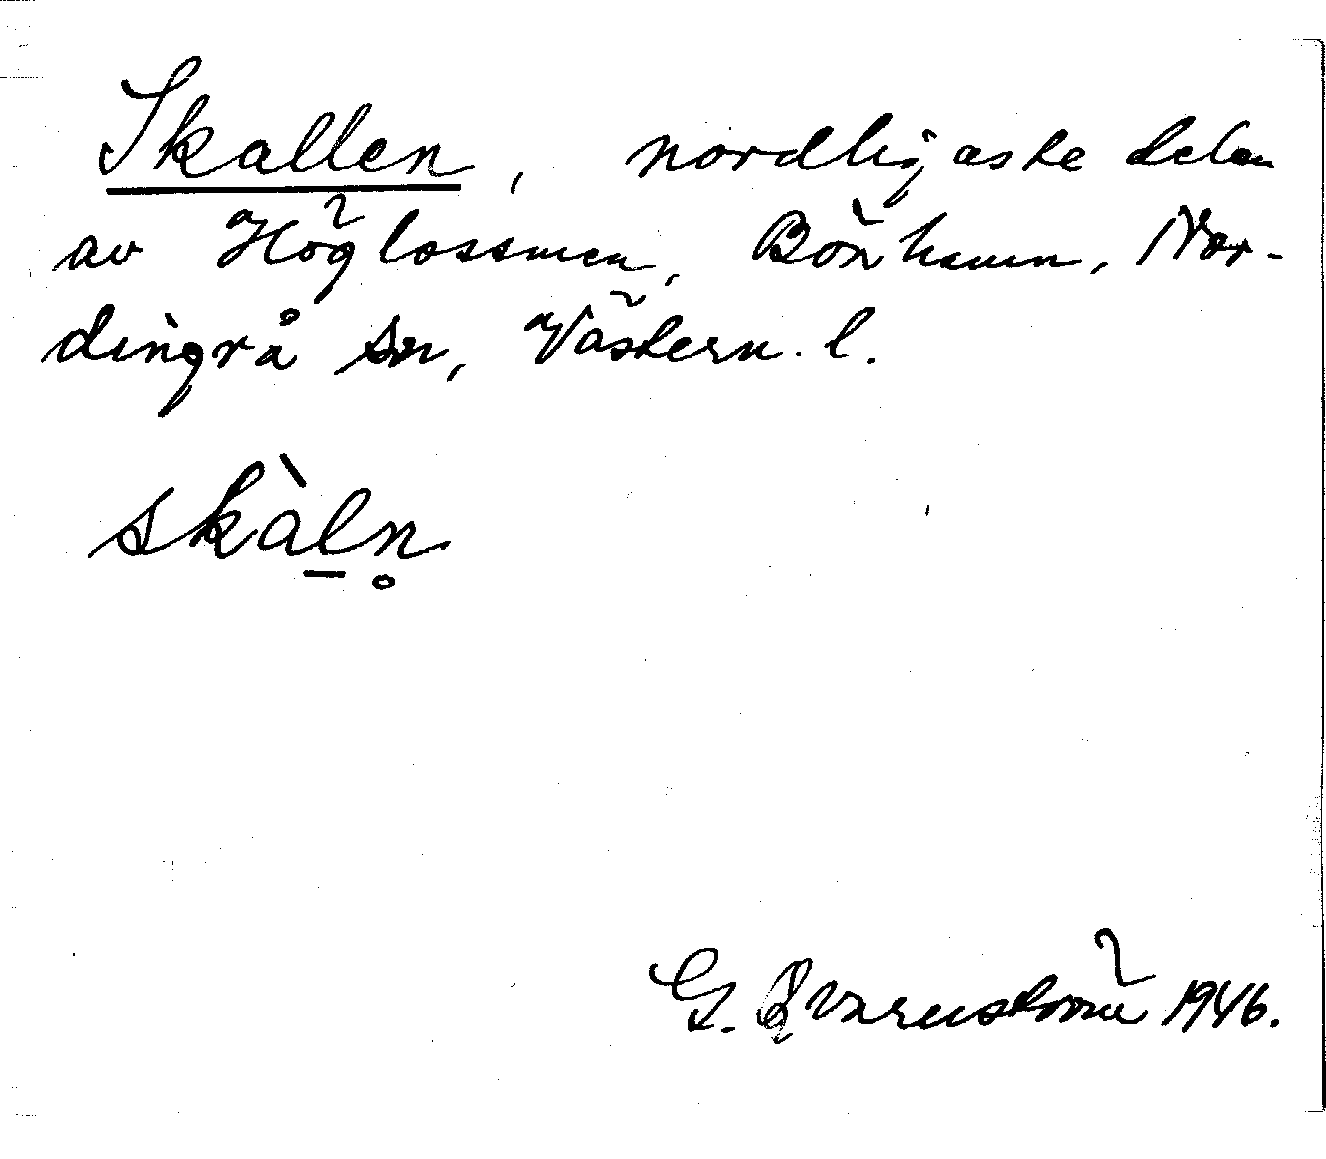 Skallen, nordligaste delen
av Höglossmen, Bönhamn, Nor-
dingrå sn, Västern. l.
skàl̲n̥
G. Qvarnström 1946.